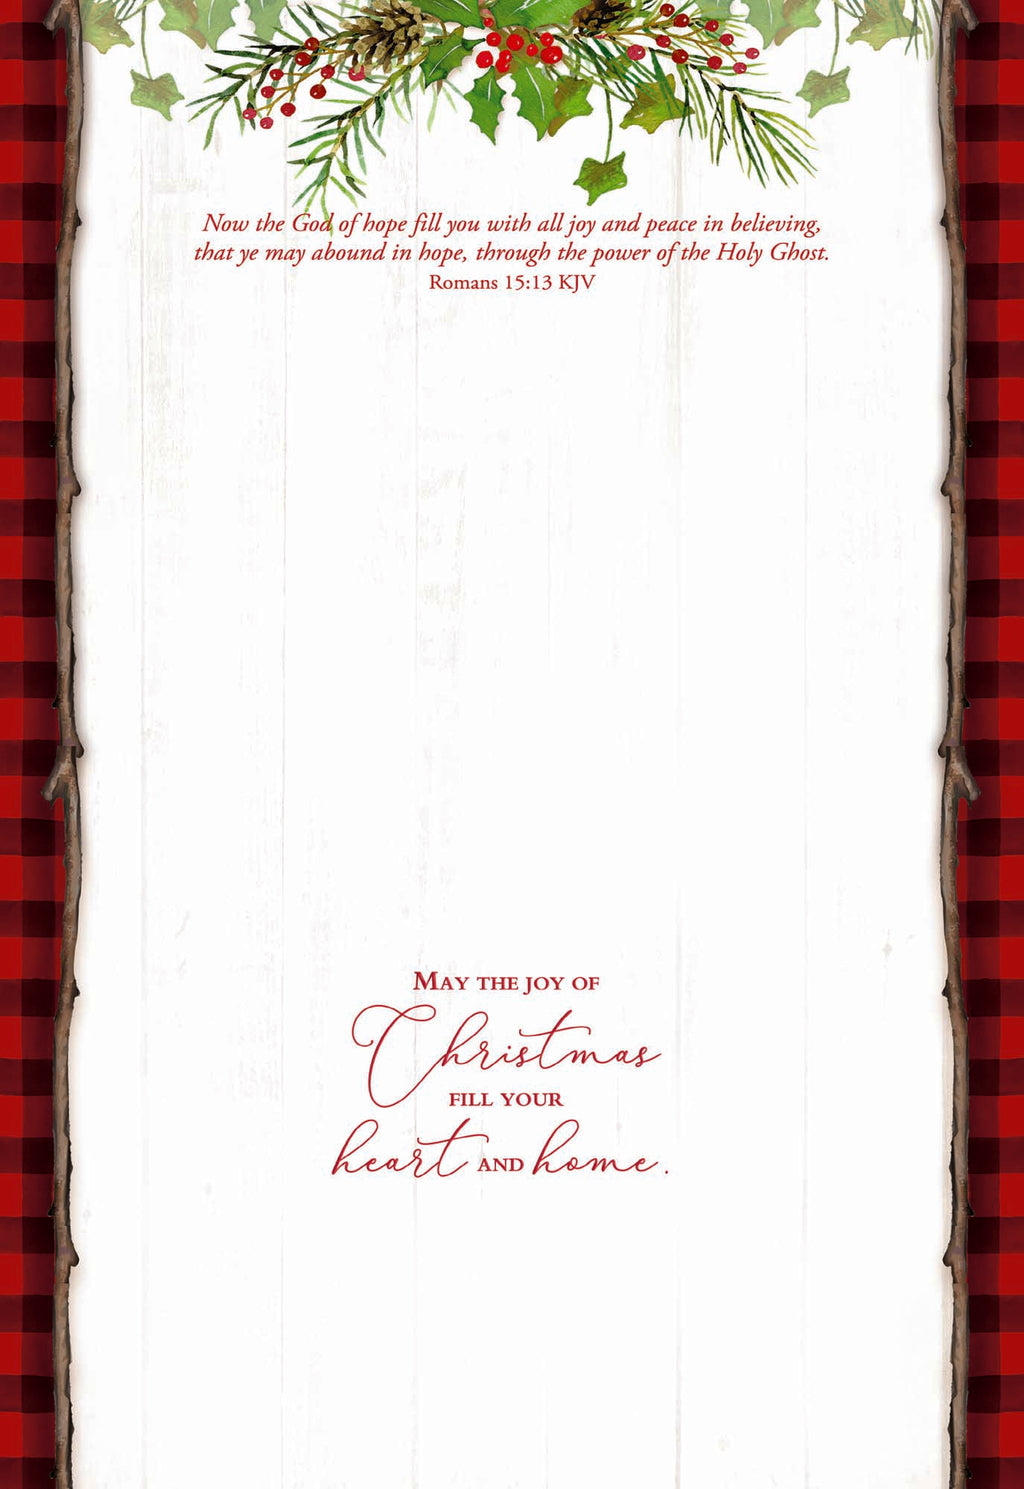 Now the God of hope fill you with all joy and peace in believing,
that ye may abound in hope, through the power of the Holy Ghost.
Romans 15:13 KJV
May the joy of
Christmas
fill your
heart and home.